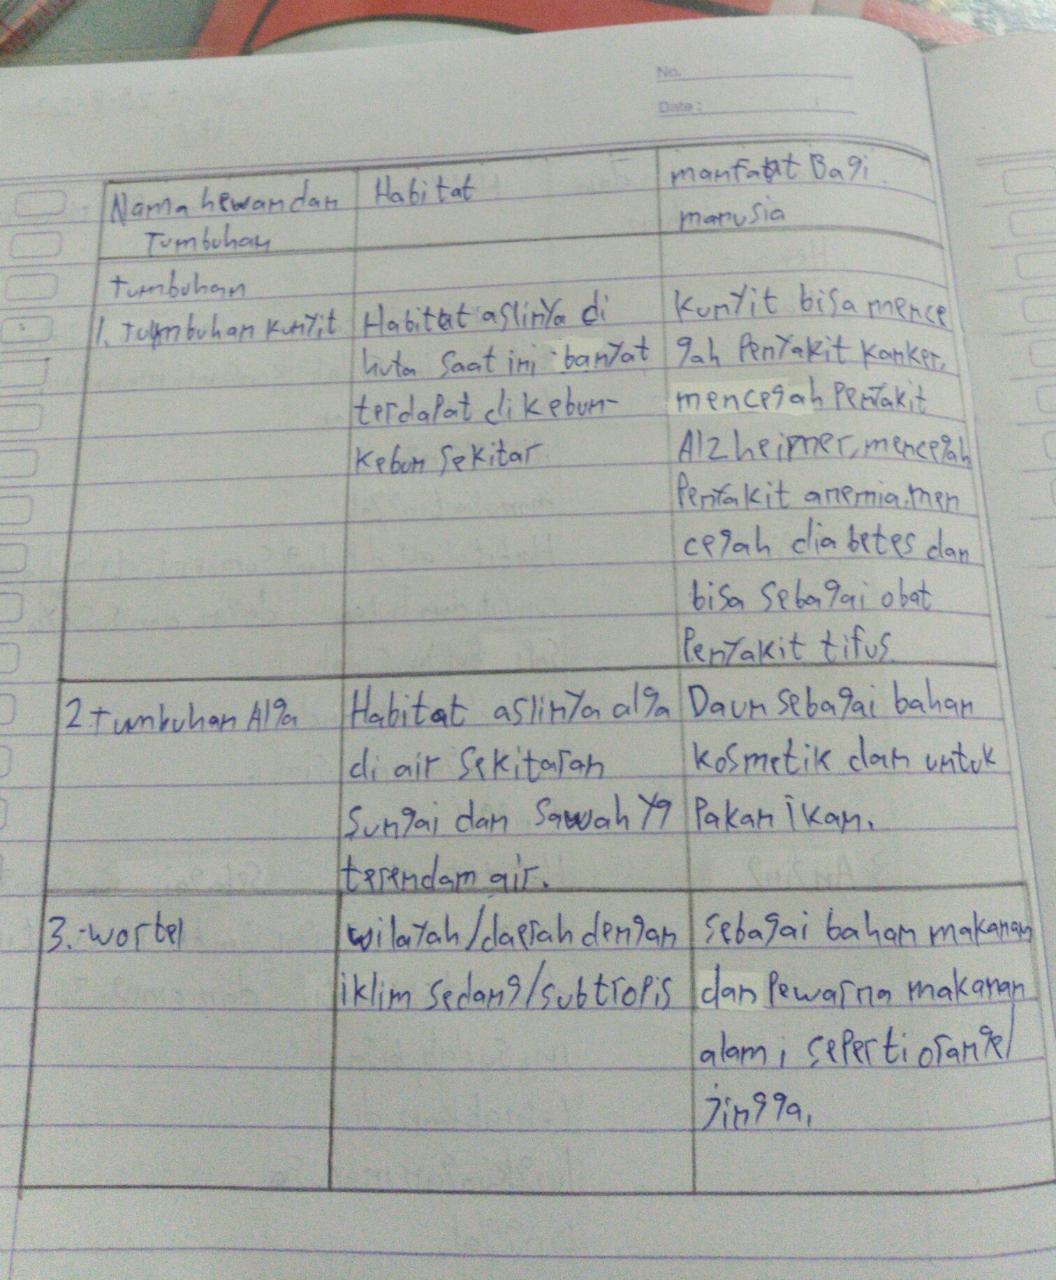 No.
Date:
Nama hewan dan
Tumbuhan
Habitat
manfaat Bagi
manusia
tumbuhan
1. Tumbuhan kunyit
Habitat aslinya di
huta saat ini banyat
terdapat di kebun-
kebun sekitar
kunyit bisa mence
gah Penyakit kanker,
mencegah Penyakit
Alzheimer, mencegah
Penyakit anemia, men
cegah diabetes dan
bisa sebagai obat
Penyakit tifus
2 tumbuhan Alga
Habitat aslinya alga
di air sekitaran
Sungai dan sawah yg
terendam air.
Daun sebagai bahan
kosmetik dan untuk
Pakan ikan.
3. wortel
wilayah/daerah dengan
iklim sedang/subtropis
sebagai bahan makanan
dan Pewarna makanan
alami seperti orange/
jingga,